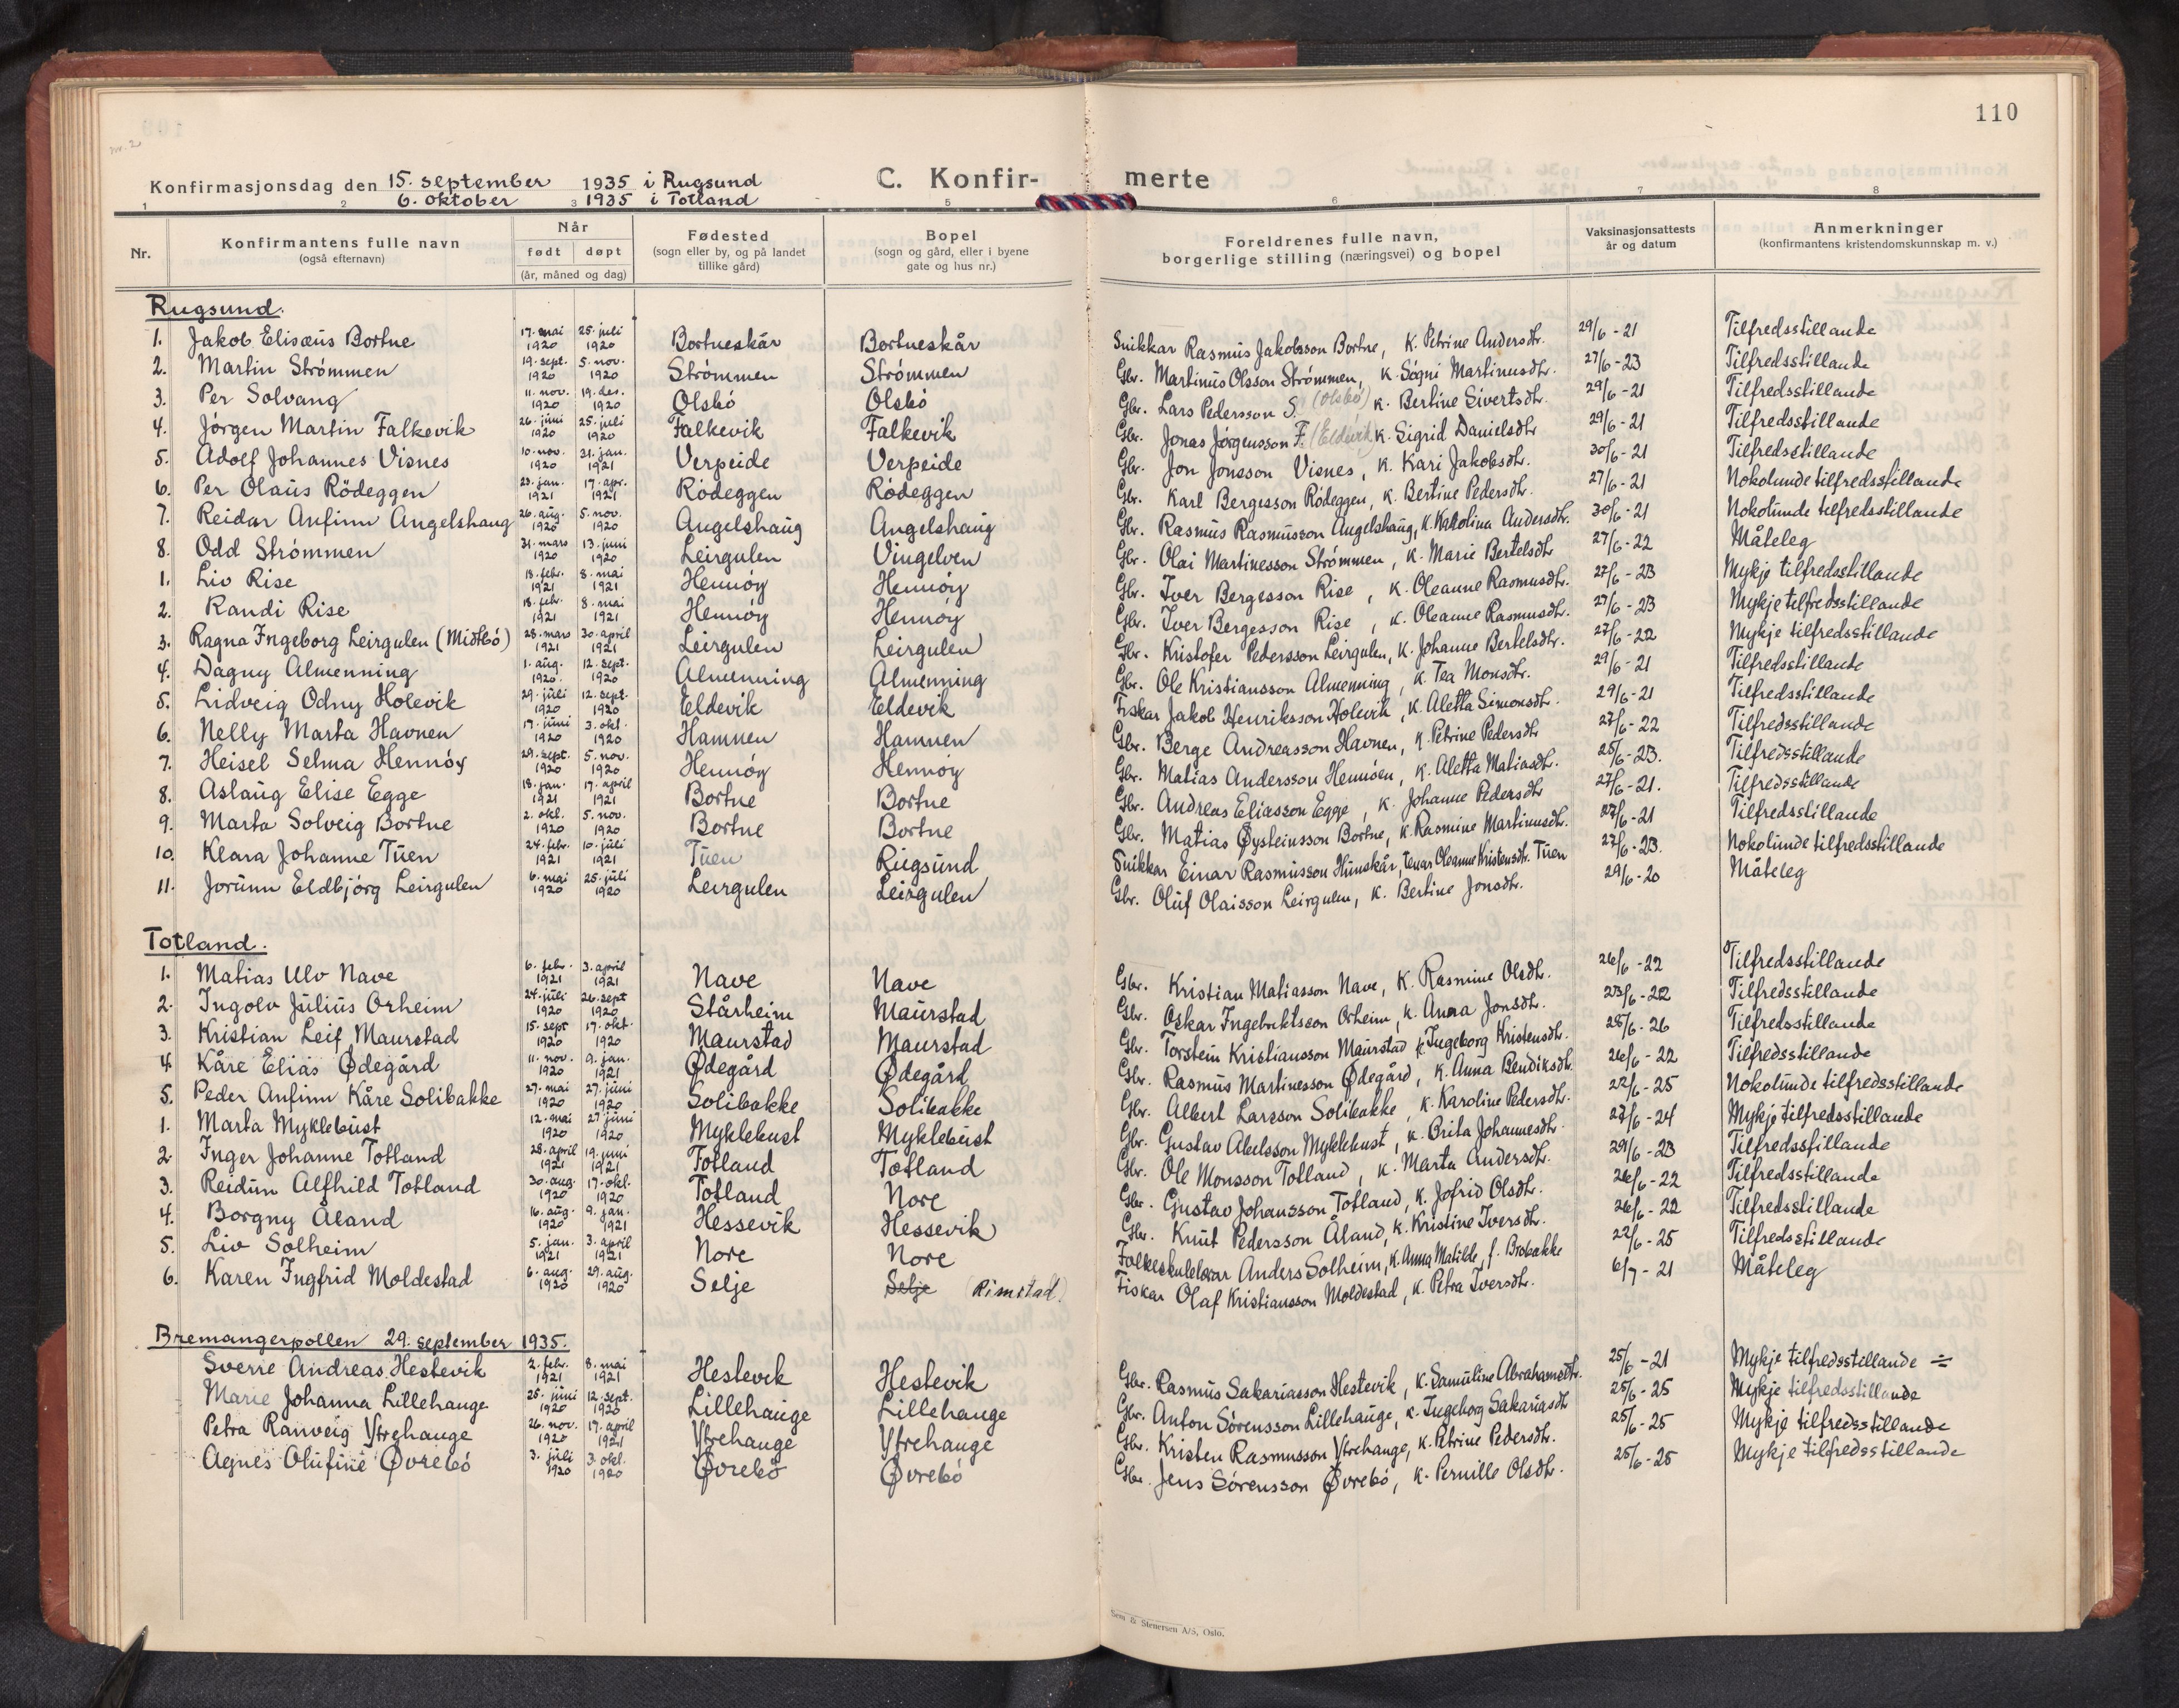 110
Konfirmasjonsdag den 15. september 1935 i Rugsund C. Konfir- merte
6. oktober 1935 i Totland
1 2 3 5 6 7 8
Nr. Konfirmantens fulle navn (også efternavn) Når født døpt (år, måned og dag) Fødested (sogn eller by, og på landet tillike gård) Bopel (sogn og gård, eller i byene gate og hus nr.) Foreldrenes fulle navn, borgerlige stilling (næringsvei) og bopel Vaksinasjonsattests år og datum Anmerkninger (konfirmantens kristendomskunnskap m. v.)
Rugsund.
1. Jakob Elisæus Bortne 17. mai 1920 25. juli 1920 Bortneskår Bortneskår Snikkar Rasmus Jakobsson Bortne, K. Petrine Andersdtr. 29/6 - 21 Tilfredsstillande
2. Martin Strömmen 19. sept. 1920 5. nov. 1920 Strömmen Strömmen Gbr. Martinus Olsson Strömmen, K. Sögni Martinusdtr. 27/6 - 23 Tilfredsstillande
3. Per Solvang 11. nov. 1920 19. des. 1920 Olsbö Olsbö Gbr. Lars Pedersson S. (Olsbö) K. Bertine Sivertsdtr. 29/6 - 21 Tilfredsstillande
4. Jörgen Martin Falkevik 26. juni 1920 25. juli 1920 Falkevik Falkevik Gbr. Jonas Jörgensson F. (Eldevik) K. Sigrid Danielsdtr 29/6 - 21 Tilfredsstillande
5. Adolf Johannes Visnes 10. nov. 1920 21. jan. 1921 Verpeide Verpeide Gbr. Jon Jonsson Visnes, K. Kari Jakobsdtr. 30/6 - 21 Tilfredsstillande
6. Per Olaus Rödeggen 23. jan. 1921 17. apr. 1921 Rödeggen Rödeggen Gbr. Karl Bergesson Rödeggen, K. Bertine Pedersdtr. 27/6 - 21 Nokolunde tilfredsstillande
7. Reidar Anfinn Angelshaug 26. aug. 1920 5. nov. 1920 Angelshaug Angelshaug Gbr. Rasmus Rasmusson Angelshaug, K. Katolina Andersdtr. 30/6 - 21 Nokolunde tilfredsstillande
8. Odd Strömmen 31. mars 1920 13. juni 1920 Leirgulen Vingelven Gbr. Olai Martinesson Strömmen, K. Marie Bertelsdtr 27/6 - 22 Måteleg
1. Liv Rise 18. febr. 1921 8. mai 1921 Hennöy Hennöy Gbr. Iver Bergesson Rise, K. Oleanne Rasmusdtr. 27/6 - 23 Mykje tilfredsstillande
2. Randi Rise 18. febr. 1921 8. mai 1921 Hennöy Hennöy Gbr. Iver Bergesson Rise, K. Oleanne Rasmusdtr. 27/6 - 23 Mykje tilfredsstillande
3. Ragna Ingeborg Leirgulen (Midtbö) 28. mars 1921 30. april 1921 Leirgulen Leirgulen Gbr. Kristofer Pedersson Leirgulen, K. Johanne Bertelsdtr. 27/6 - 22 Mykje tilfredsstillande
4. Dagny Almenning 1. aug. 1920. 12. sept. 1920 Almenning Almenning Gbr. Ole Kristiansson Almenning, K. Tea Monsdtr. 29/6 - 21 Tilfredsstillande
5. Lidveig Odny Holevik 29. juli 1920 12. sept. 1920 Eldevik Eldevik Fiskar Jakob Henriksson Holevik, K. Aletta Simonsdtr. 29/6 - 21 Tilfredsstillande
6. Nelly Marta Havnen 17. juni 1920 3. okt. 1920 Hamnen Hamnen Gbr. Berge Andreasson Havnen, K. Petrine Pedersdtr 27/6 - 22 Tilfredsstillande
7. Heisel Selma Hennöy 29. sept. 1920 5. nov. 1920 Hennöy Hennöy Gbr. Matias Andersson Hennöen, K. Aletta Matiasdtr. 25/6 - 23. Tilfredsstillande
8. Aslaug Elise Egge 18. jan. 1921 17. april 1921 Bortne Bortne Gbr. Andreas Eliasson Egge, K. Johanne Pedersdtr 27/6 - 21. Tilfredsstillande
9. Marta Solveig Bortne 2. okt. 1920 5. nov. 1920 Bortne Bortne Gbr. Matias Øysteinsson Bortne, K. Rasmine Martinusdtr. 27/6 - 21 Tilfredsstillande
10. Klara Johanne Tuen 24. febr. 1921 10. juli 1921 Tuen Rugsund Snikkar Einar Rasmusson Huneskår, tenar Oleanne Kristensdtr. Tuen 27/6 - 23. Nokolunde tilfredsstillande
11. Jorunn Eldbjörg Leirgulen 6. mai 1920 25. juli 1920 Leirgulen Leirgulen Gbr. Oluf Olaisson Leirgulen, K. Bertine Jonsdtr. 29/6 - 20 Måteleg
Totland.
1. Matias Ulv Nave 6. febr. 1921 3. april 1921 Nave Nave Gbr. Kristian Matiasson Nave, K. Rasmine Olsdtr. 26/6 - 22 Tilfredsstillande
2. Ingolv Julius Orheim 24. juli 1920 26. sept 1920 Stårheim Maurstad Gbr. Oskar Ingebriktsson Orheim, K. Anna Jonsdtr. 23/6 - 22 Tilfredsstillande
3. Kristian Leif Maurstad 15. sept 1920 17. okt. 1920 Maurstad Maurstad Gbr. Torstein Kristiansson Maurstad K. Ingeborg Kristensdtr. 28/6 - 26 Tilfredsstillande
4 Kåre Elias Ødegård 11. nov. 1920 9. jan. 1921 Ødegård Ødegård Gbr. Rasmus Martinesson Ødegård, K. Anna Bendiksdtr. 26/6 - 22 Tilfredsstillande
5. Peder Anfinn Kåre Solibakke 27. mai 1920 27. juni 1920 Solibakke Solibakke Gbr. Albert Larsson Solibakke, K. Karoline Pedersdtr. 22/6 - 25 Nokolunde tilfredsstillande
1. Marta Myklebust 12. mai 1920 27 juni 1920 Myklebust Myklebust Gbr. Gustav Abelsson Myklebust, K. Brita Johannesdtr. 27/6 - 24 Mykje tilfredsstillande
2. Inger Johanne Totland 28. april 1921 19. juni 1921 Totland Totland Gbr. Ole Monsson Totland, K. Marta Andersdtr. 29/6 - 23 Tilfredsstillande
3. Reidun Alfhild Totland 30. aug. 1920 17. okt. 1920 Totland Nore Gbr. Gustav Johansson Totland, K. Jofrid Olsdtr. 26/6 - 22 Tilfredsstillande
4. Borgny Åland 16. aug. 1920 9. jan. 1921 Hessevik Hessevik Gbr. Knut Pedersson Åland, K. Kristine Iversdtr. 26/6 - 22 Tilfredsstillande
5. Liv Solheim 5. jan. 1921 3. april 1921 Nore Nore Folkeskulelærar Anders Solheim, K. Anna Matilde, f. Brobakke 22/6 - 25 Tilfredsstillande
6. Karen Ingfrid Moldestad 6. aug. 1920 29. aug. 1920 Selje Selje (Rimstad) Fiskar Olaf Kristiansson Moldestad, K. Petra Iversdtr. 6/7 - 21 Måteleg
Bremangerpollen 29. september 1935.
Sverre Andreas Hestevik 2. febr. 1921 8. mai 1921 Hestevik Hestevik Gbr. Rasmus Sakariasson Hestevik, K. Samuline Abrahamsdtr. 25/6 - 21 Mykje tilfredsstillande ÷
Marie Johanna Lillehauge 25. juni 1920 12. sept. 1920 Lillehauge Lillehauge Gbr. Anton Sörensson Lillehauge, K. Ingeborg Sakariasdtr 25/6 - 25 Mykje tilfredsstillande
Petra Ranveig Ytrehauge 26. nov. 1920 17. april 1921 Ytrehauge Ytrehauge Gbr. Kristen Rasmusson Ytrehauge, K. Petrine Pedersdtr. 25/6 - 25 Mykje tilfredsstillande
Agnes Olufine Øvrebö 3. juli 1920 3. okt. 1920 Øvrebö Øvrebö Gbr. Jens Sörensson Øvrebö, K. Pernille Olsdtr. 25/6 - 25 Mykje tilfredsstillande
Sem & Stenersen A/S, Oslo.